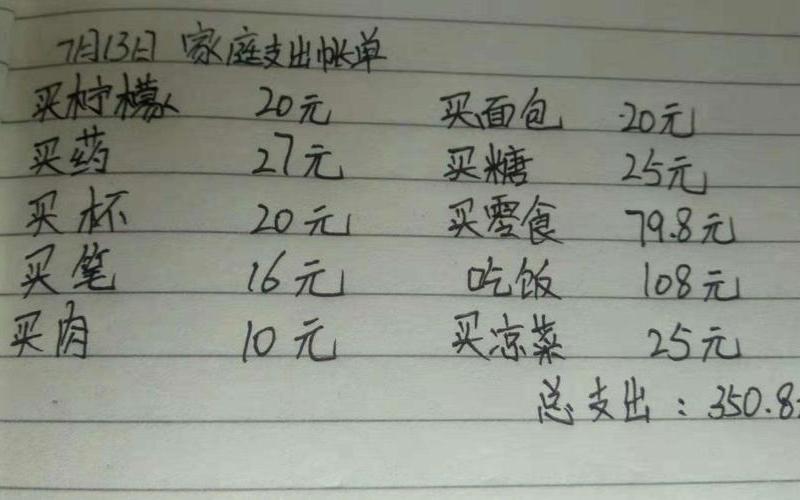 7月13日 家庭支出帐单
买柠檬 20元 买面包 20元
买药 27元 买糖 25元
买杯 20元 买零食 79.8元
买笔 16元 吃饭 108元
买肉 10元 买凉菜 25元
总支出：350.8